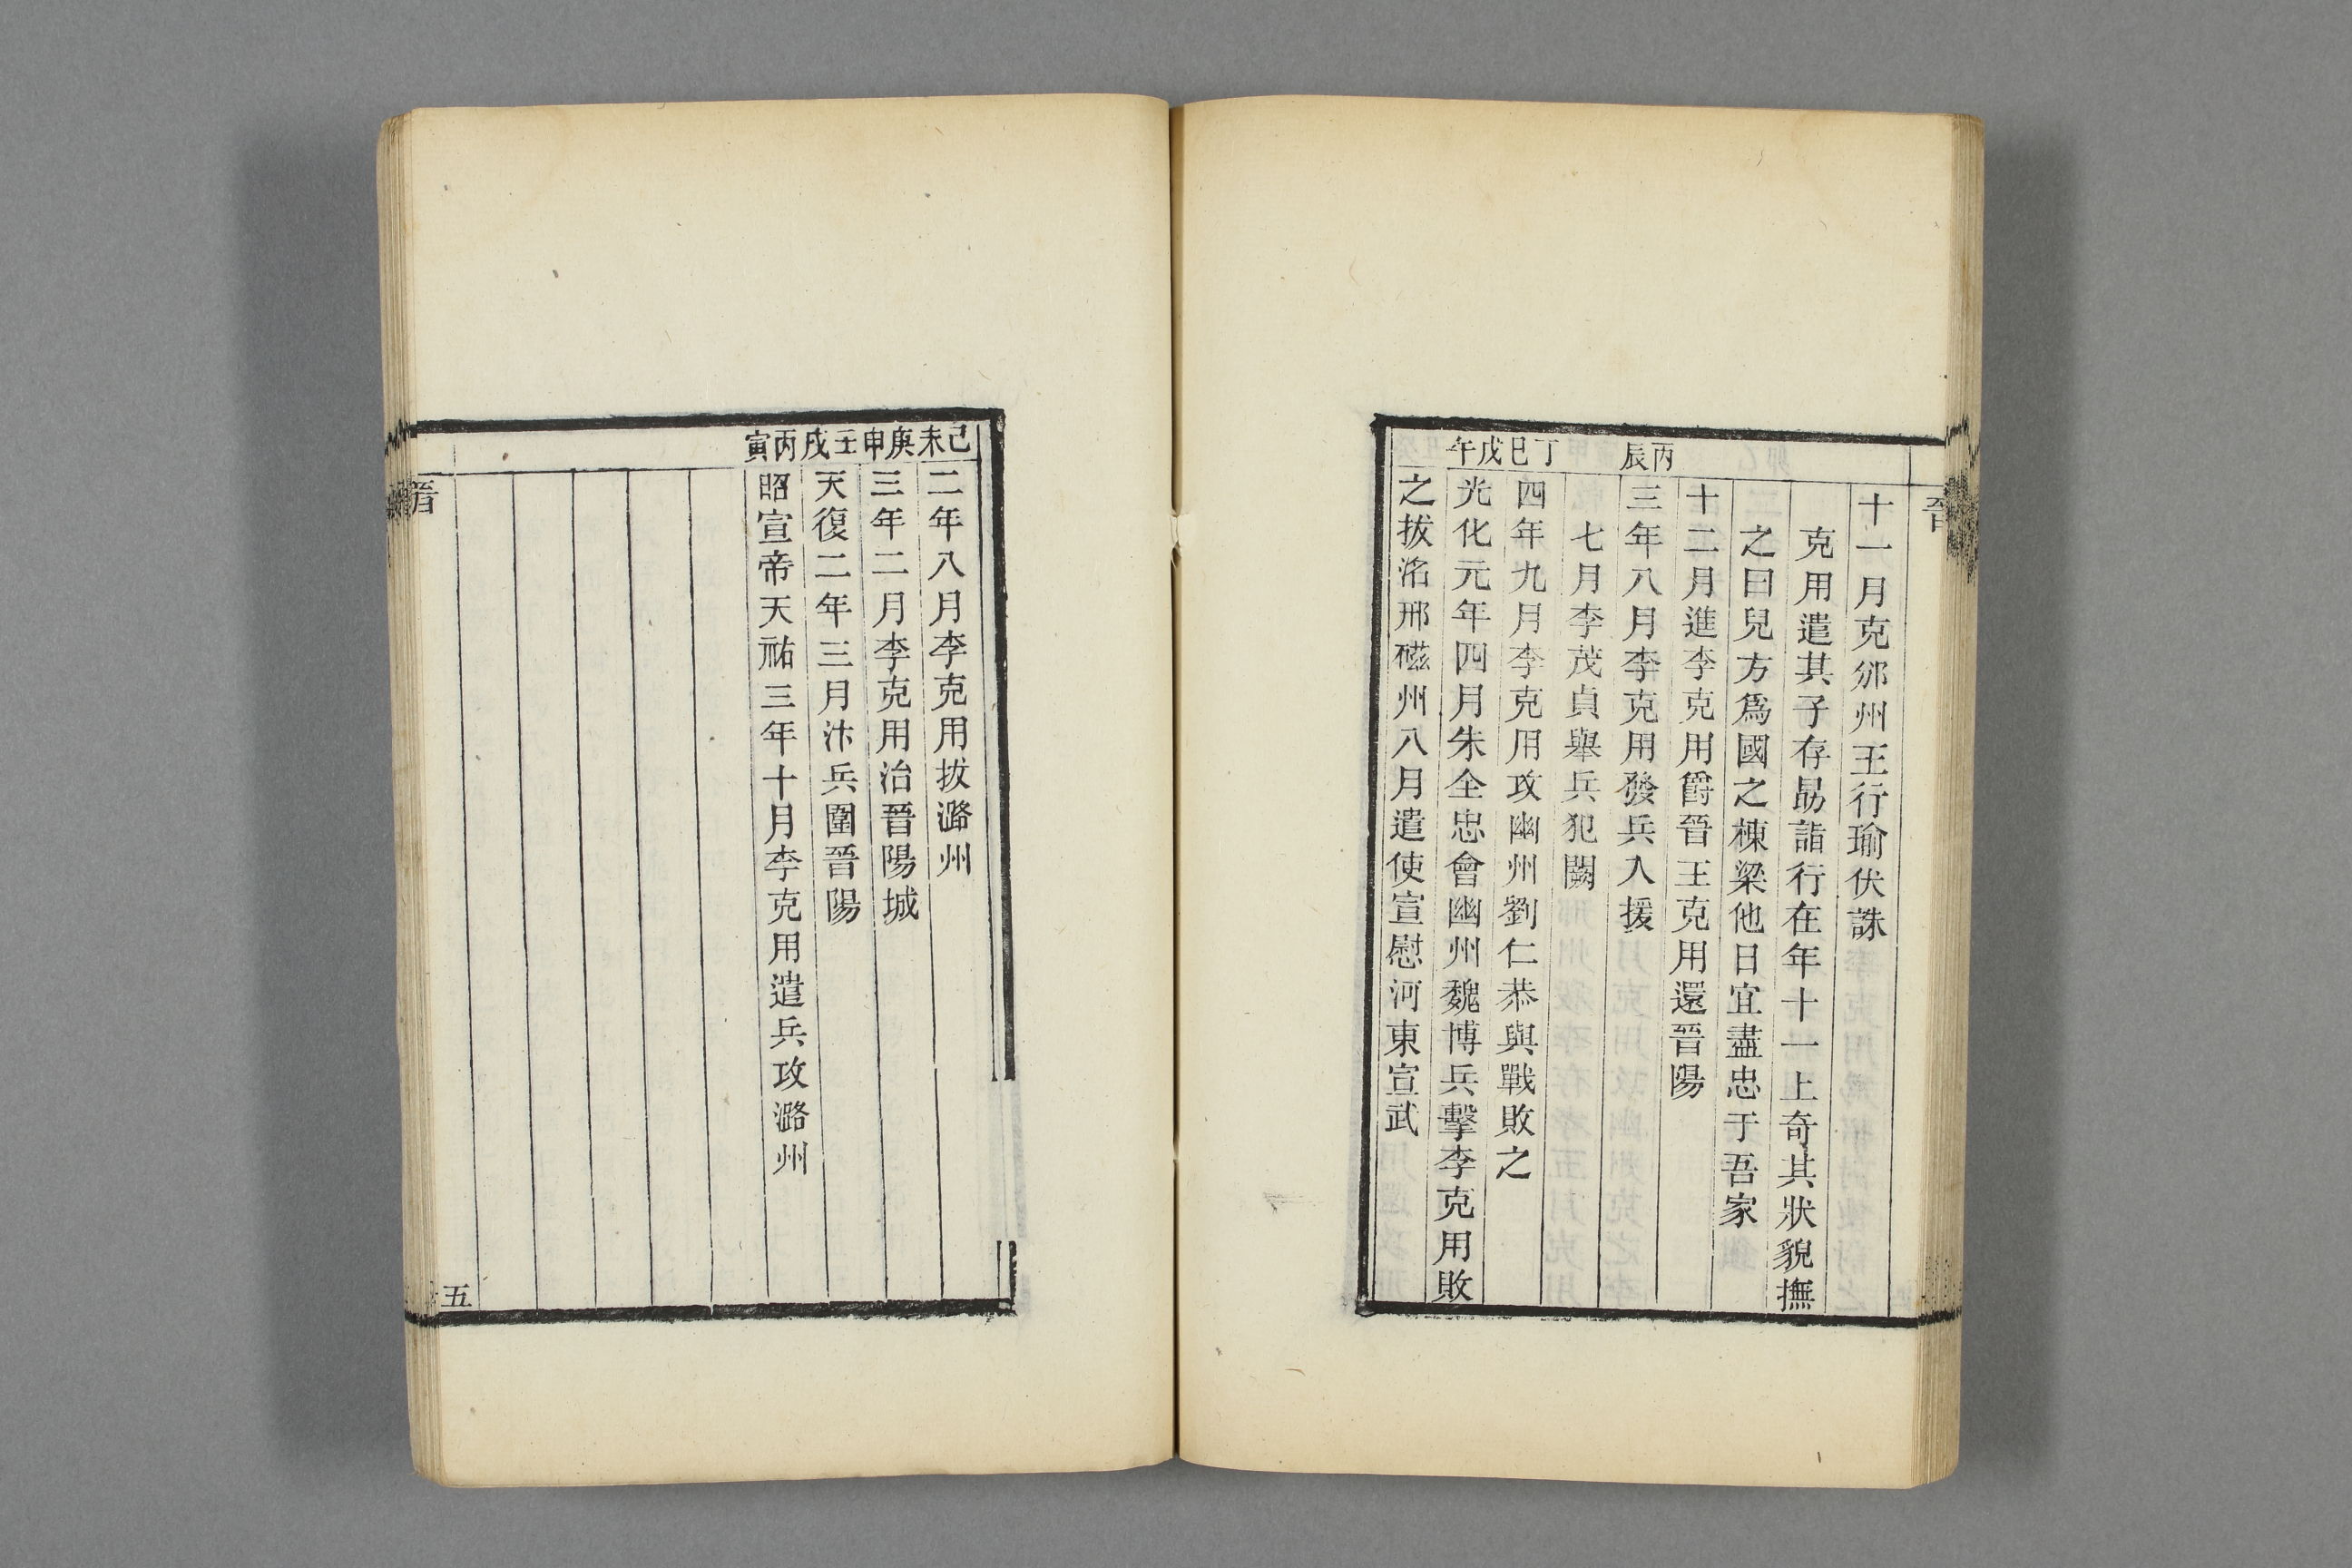 晉
十一月克邠州王行瑜伏誅
克用遣其子存勗詣行在年十一上奇其狀貌撫
之曰兒方爲國之棟梁他日宜盡忠于吾家
十二月進李克用爵晉王克用還晉陽
丙辰
三年八月李克用發兵入援
七月李茂貞舉兵犯闕
丁巳
四年九月李克用攻幽州劉仁恭與戰敗之
戊午
光化元年四月朱全忠會幽州魏博兵擊李克用敗
之拔洺邢磁州八月遣使宣慰河東宣武
己未
二年八月李克用拔潞州
庚申
三年二月李克用治晉陽城
壬戌
天復二年三月汴兵圍晉陽
丙寅
昭宣帝天祐三年十月李克用遣兵攻潞州
晉
五